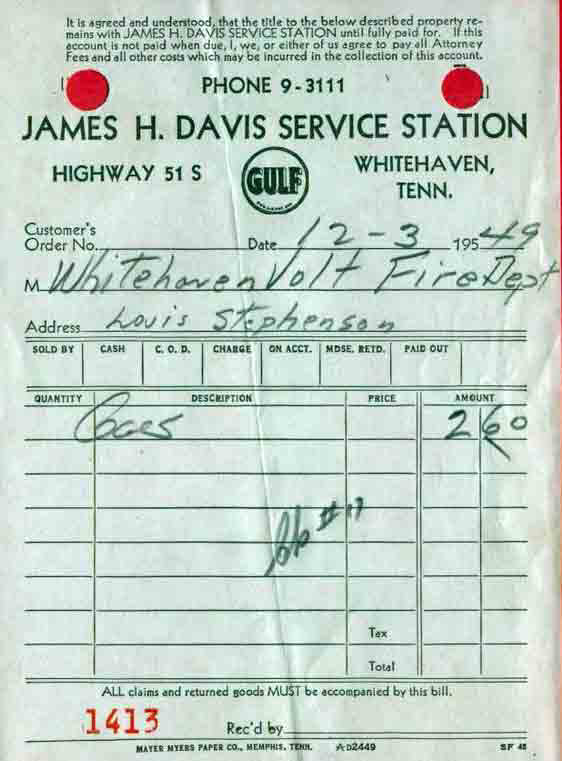 It is agreed and understood, that the title to the below described property re-
mains with JAMES H. DAVIS SERVICE STATION until fully paid for. If this
account is not paid when due, I, we, or either of us agree to pay all Attorney
Fees and all other costs which may be incurred in the collection of this account.
PHONE 9-3111
JAMES H. DAVIS SERVICE STATION
HIGHWAY 51 S GULF WHITEHAVEN,
TENN.
Customer's
Order No. Date 12-3 195 49
M Whitehaven Volt Fire Dept
Address Louis Stephenson
SOLD BY CASH C. O. D. CHARGE ON ACCT. MDSE. RETD. PAID OUT
QUANTITY DESCRIPTION PRICE AMOUNT
Gas 2 60
#17
Tax
Total
ALL claims and returned goods MUST be accompanied by this bill.
1413 Rec'd by
MAYER MYERS PAPER CO., MEMPHIS, TENN. AD2449 SF 45